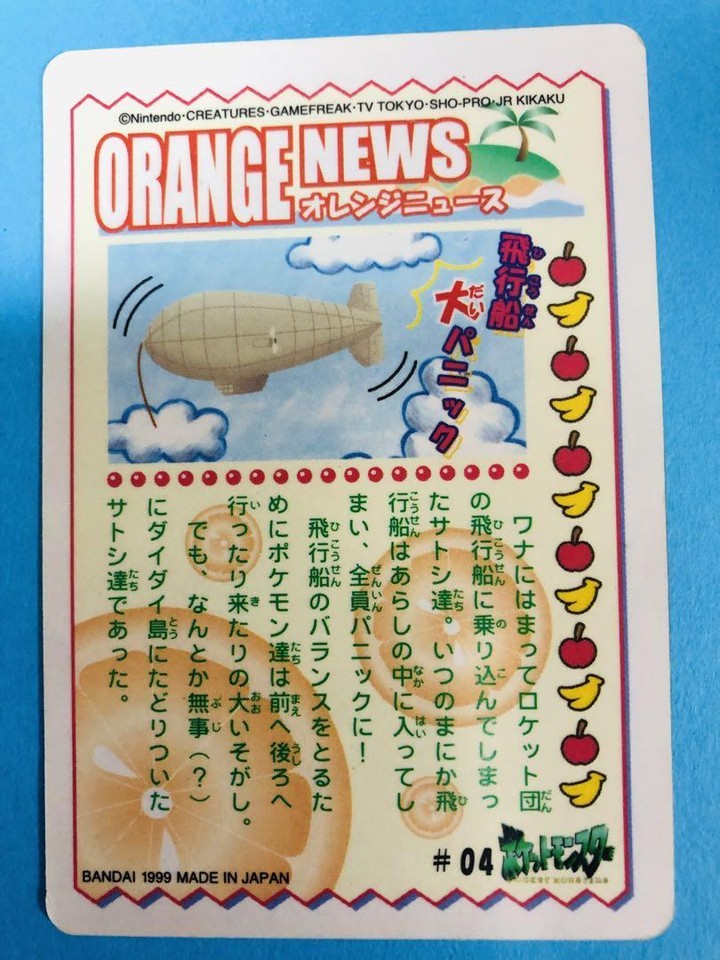 ©Nintendo・CREATURES・GAMEFREAK・TV TOKYO・SHO-PRO・JR KIKAKU
ORANGE NEWS
オレンジニュース
飛行船
大パニック
ワナにはまってロケット団
の飛行船に乗り込んでしまっ
たサトシ達。いつのまにか飛
行船はあらしの中に入ってし
まい、全員パニックに！
飛行船のバランスをとるた
めにポケモン達は前へ後ろへ
行ったり来たりの大いそがし。
でも、なんとか無事(？)
にダイダイ島にたどりついた
サトシ達であった。
#04
ポケットモンスター
POCKET MONSTERS
BANDAI 1999 MADE IN JAPAN